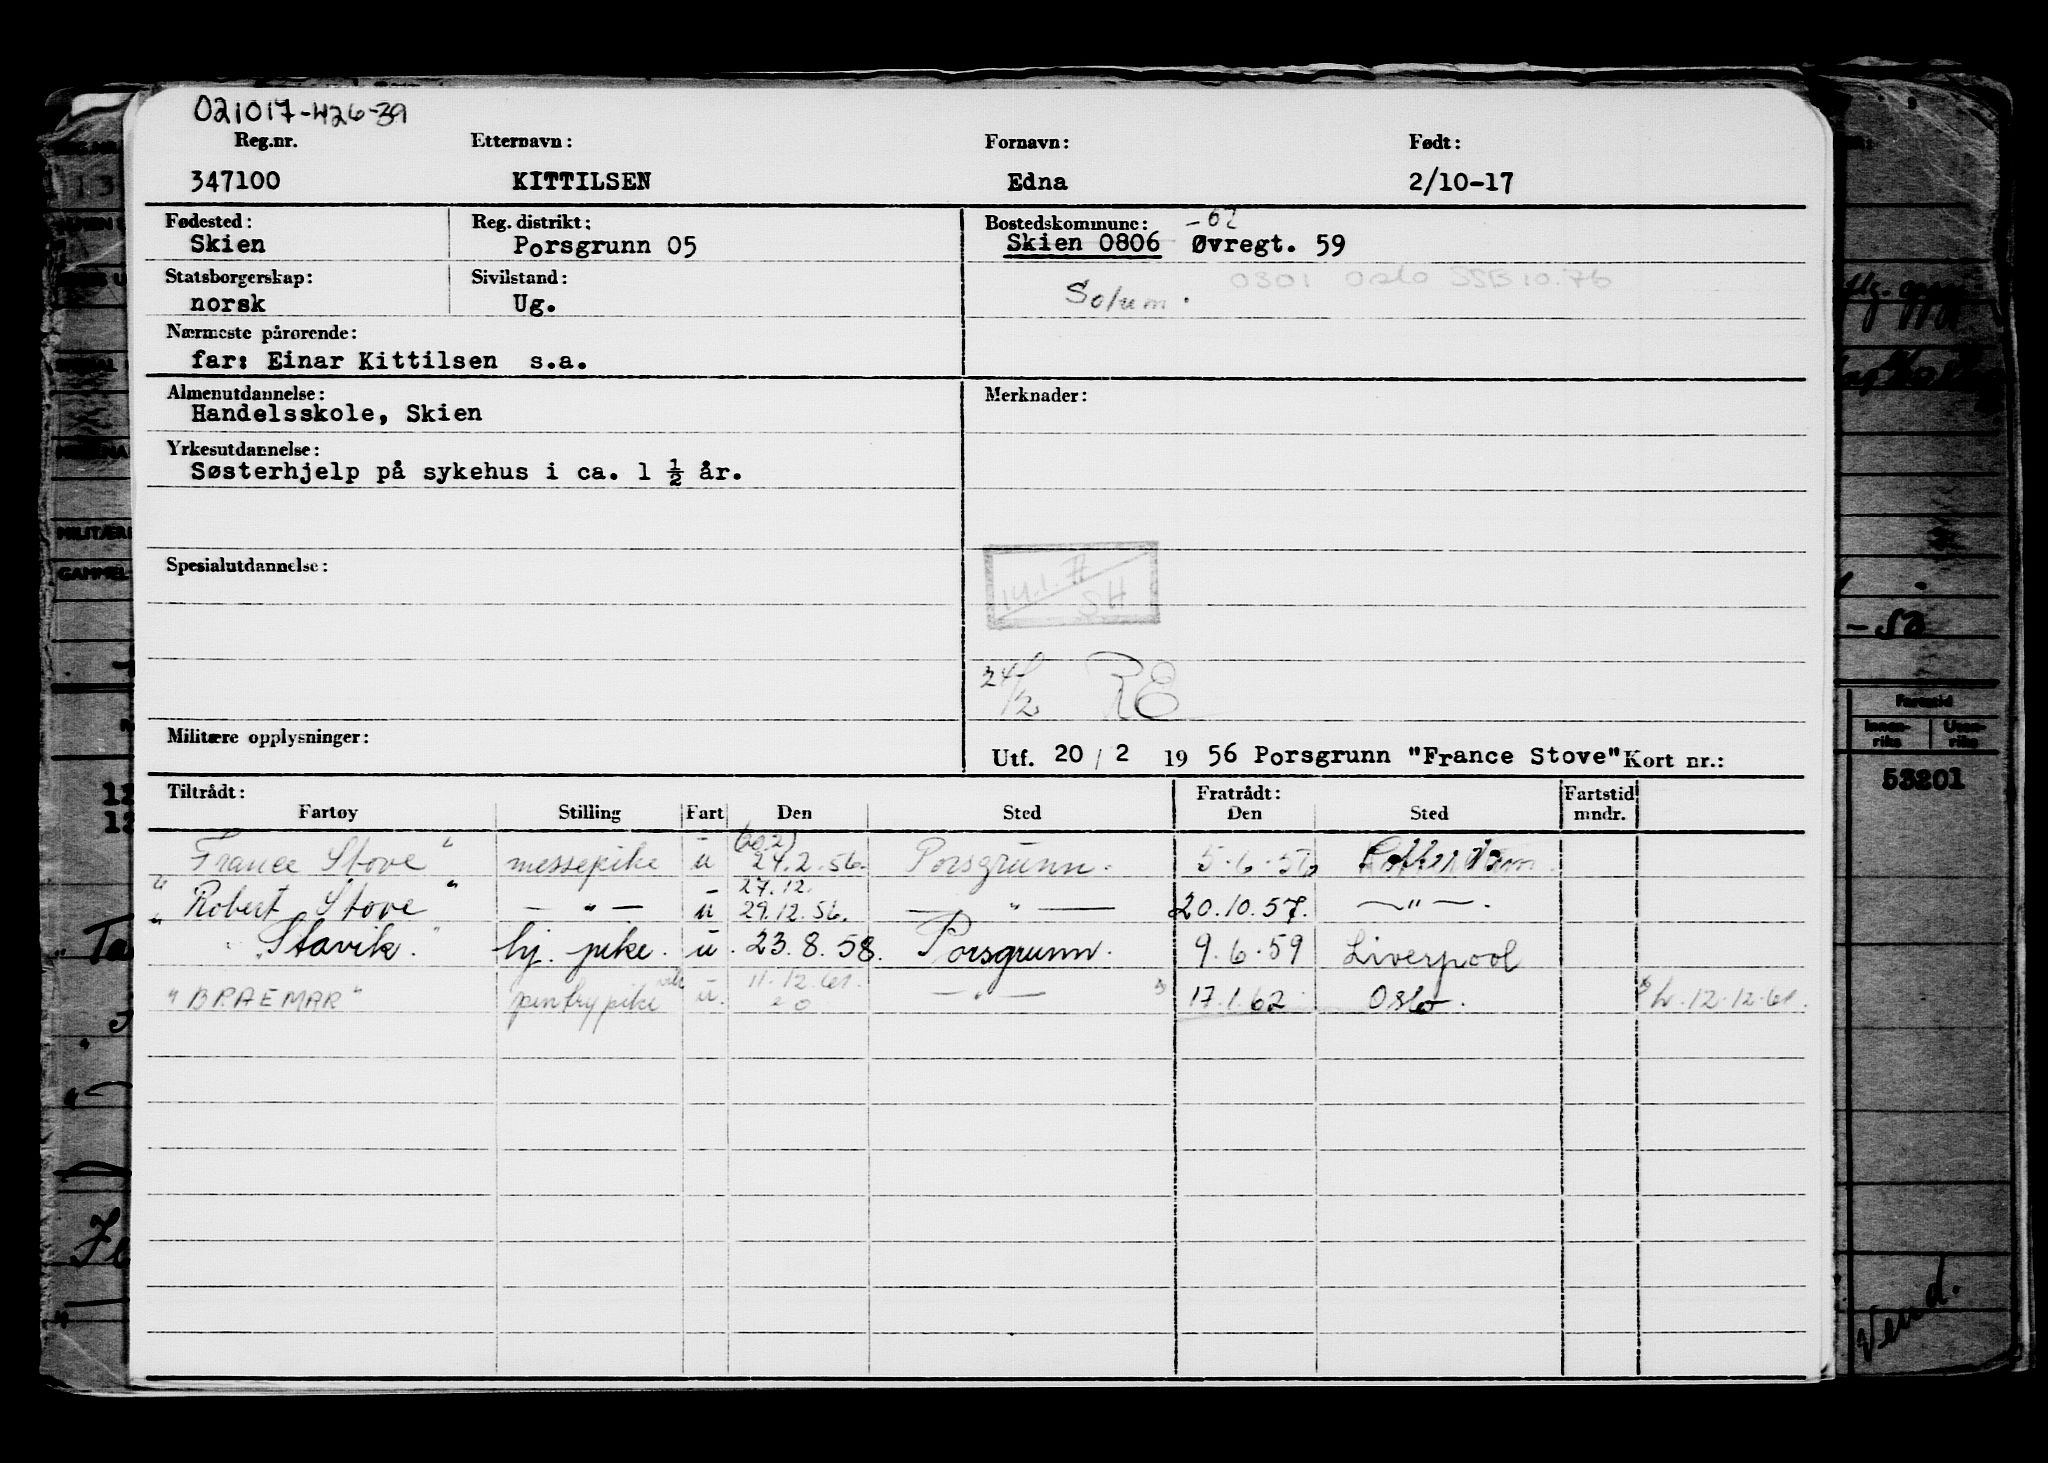 021017-426-39
Reg.nr. Etternavn: Fornavn: Født:
347100 KITTILSEN Edna 2/10-17
Fødested: Reg. distrikt: Bostedskommune: -62
Skien Porsgrunn 05 Skien 0806 Øvregt. 59
Statsborgerskap: Sivilstand: 0301 Oslo SSB 10.76
norsk Ug. Solum.
Nærmeste pårørende:
far: Einar Kittilsen s.a.
Almenutdannelse: Merknader:
Handelsskole, Skien
Yrkesutdannelse:
Søsterhjelp på sykehus i ca. 1 ½ år.
Spesialutdannelse:
14.1.77
SH
24/2 RE
Militære opplysninger:
Utf. 20 / 2 19 56 Porsgrunn "France Stove" Kort nr.:
Tiltrådt: Fratrådt: Fartstid
Fartøy Stilling Fart Den Sted Den Sted mndr.
(20.2)
"France Stove" messepike u 24.2.56. Porsgrunn. 5.6.56 Rotterdam.
27.12.
"Robert Stove" — " — u 29.12.56. — " — 20.10.57. — " — .
"Stavik." hj. pike. u. 23.8.58. Porsgrunn. 9.6.59 Liverpool
11.12.61.
"BRAEMAR" pentrypike u. — " — 17.1.62 Oslo. 12.12.61.
Fartstid
Innen-riks Uten-riks
53201
-53
MILITÆR
GAMMEL
Vend.